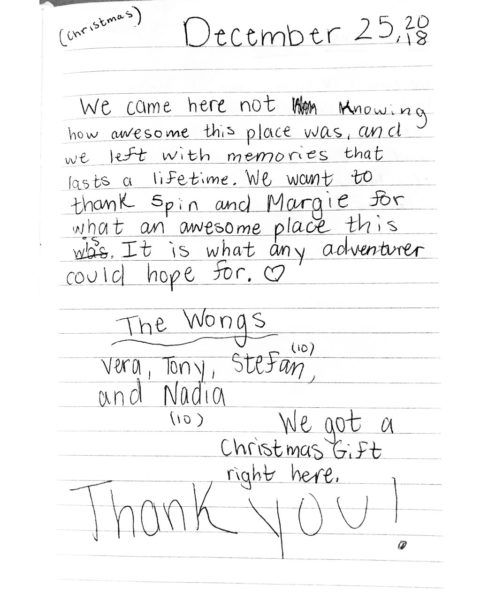 (Christmas)
December 25, 2018
We came here not knowing
how awesome this place was, and
we left with memories that
lasts a lifetime. We want to
thank Spin and Margie for
what an awesome place this
is. It is what any adventurer
could hope for. ♡
The Wongs
Vera, Tony, Stefan, (10)
and Nadia
(10)
We got a
Christmas Gift
right here.
Thank you!